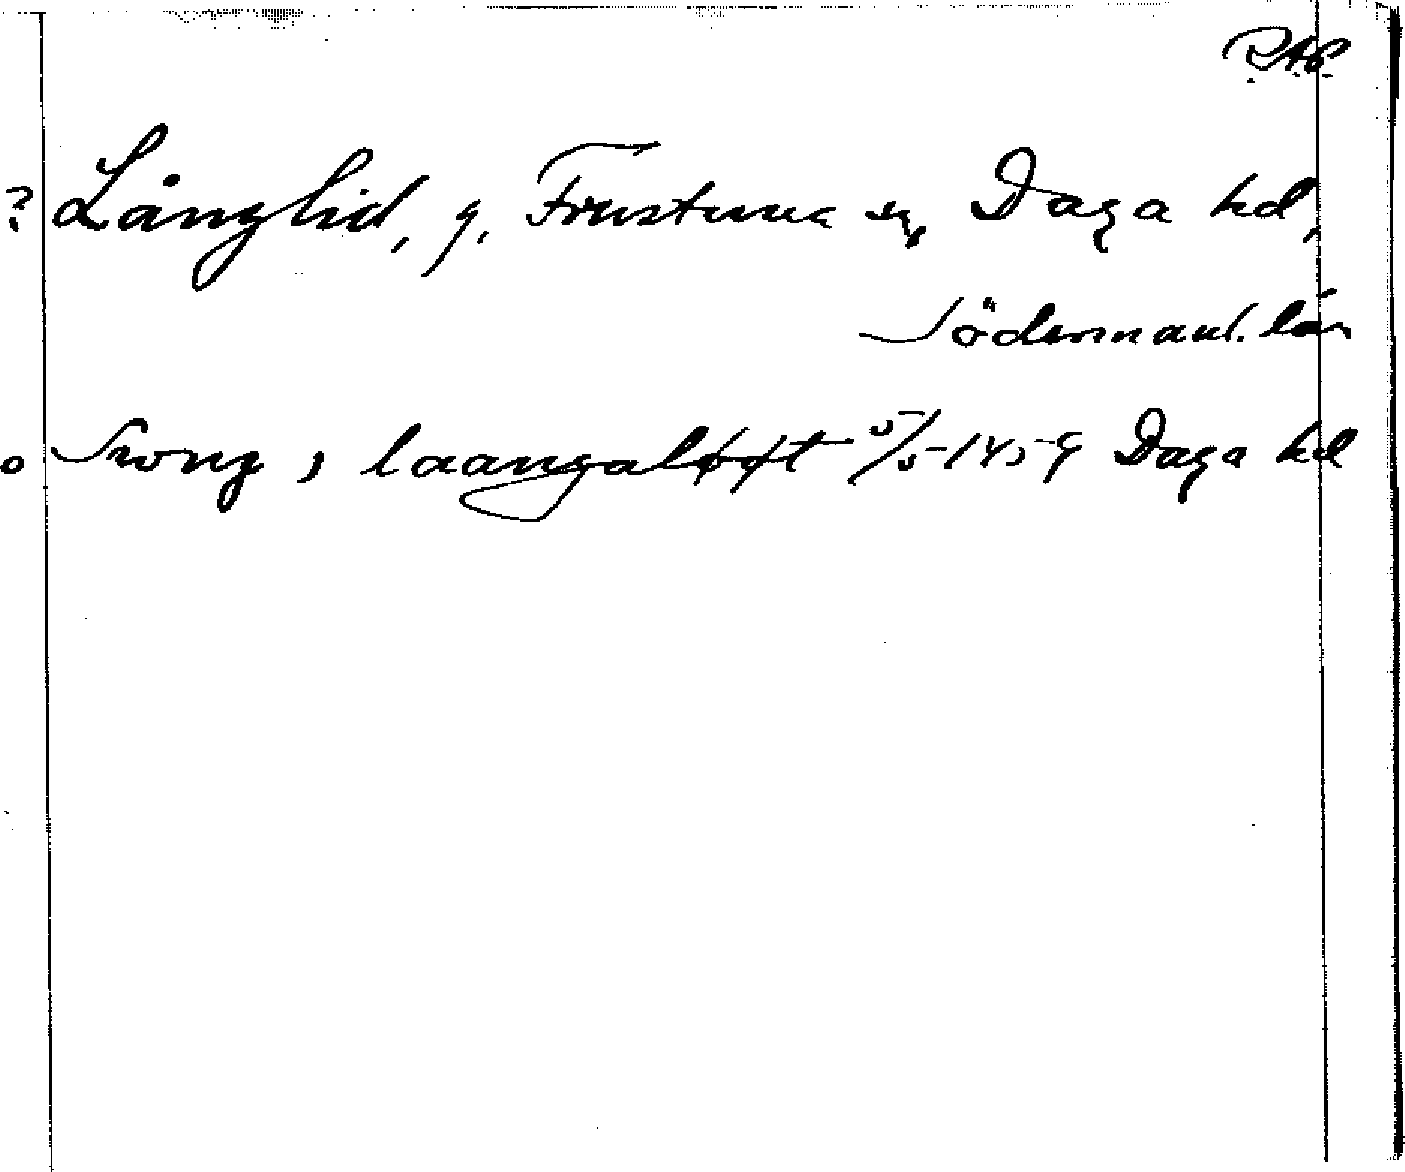 R.A.P.
? Långlid, g. Frustuna sn, Daga hd,
Södermanl. län
o Swong i laangaløøt 5/5 1459 Daga hd